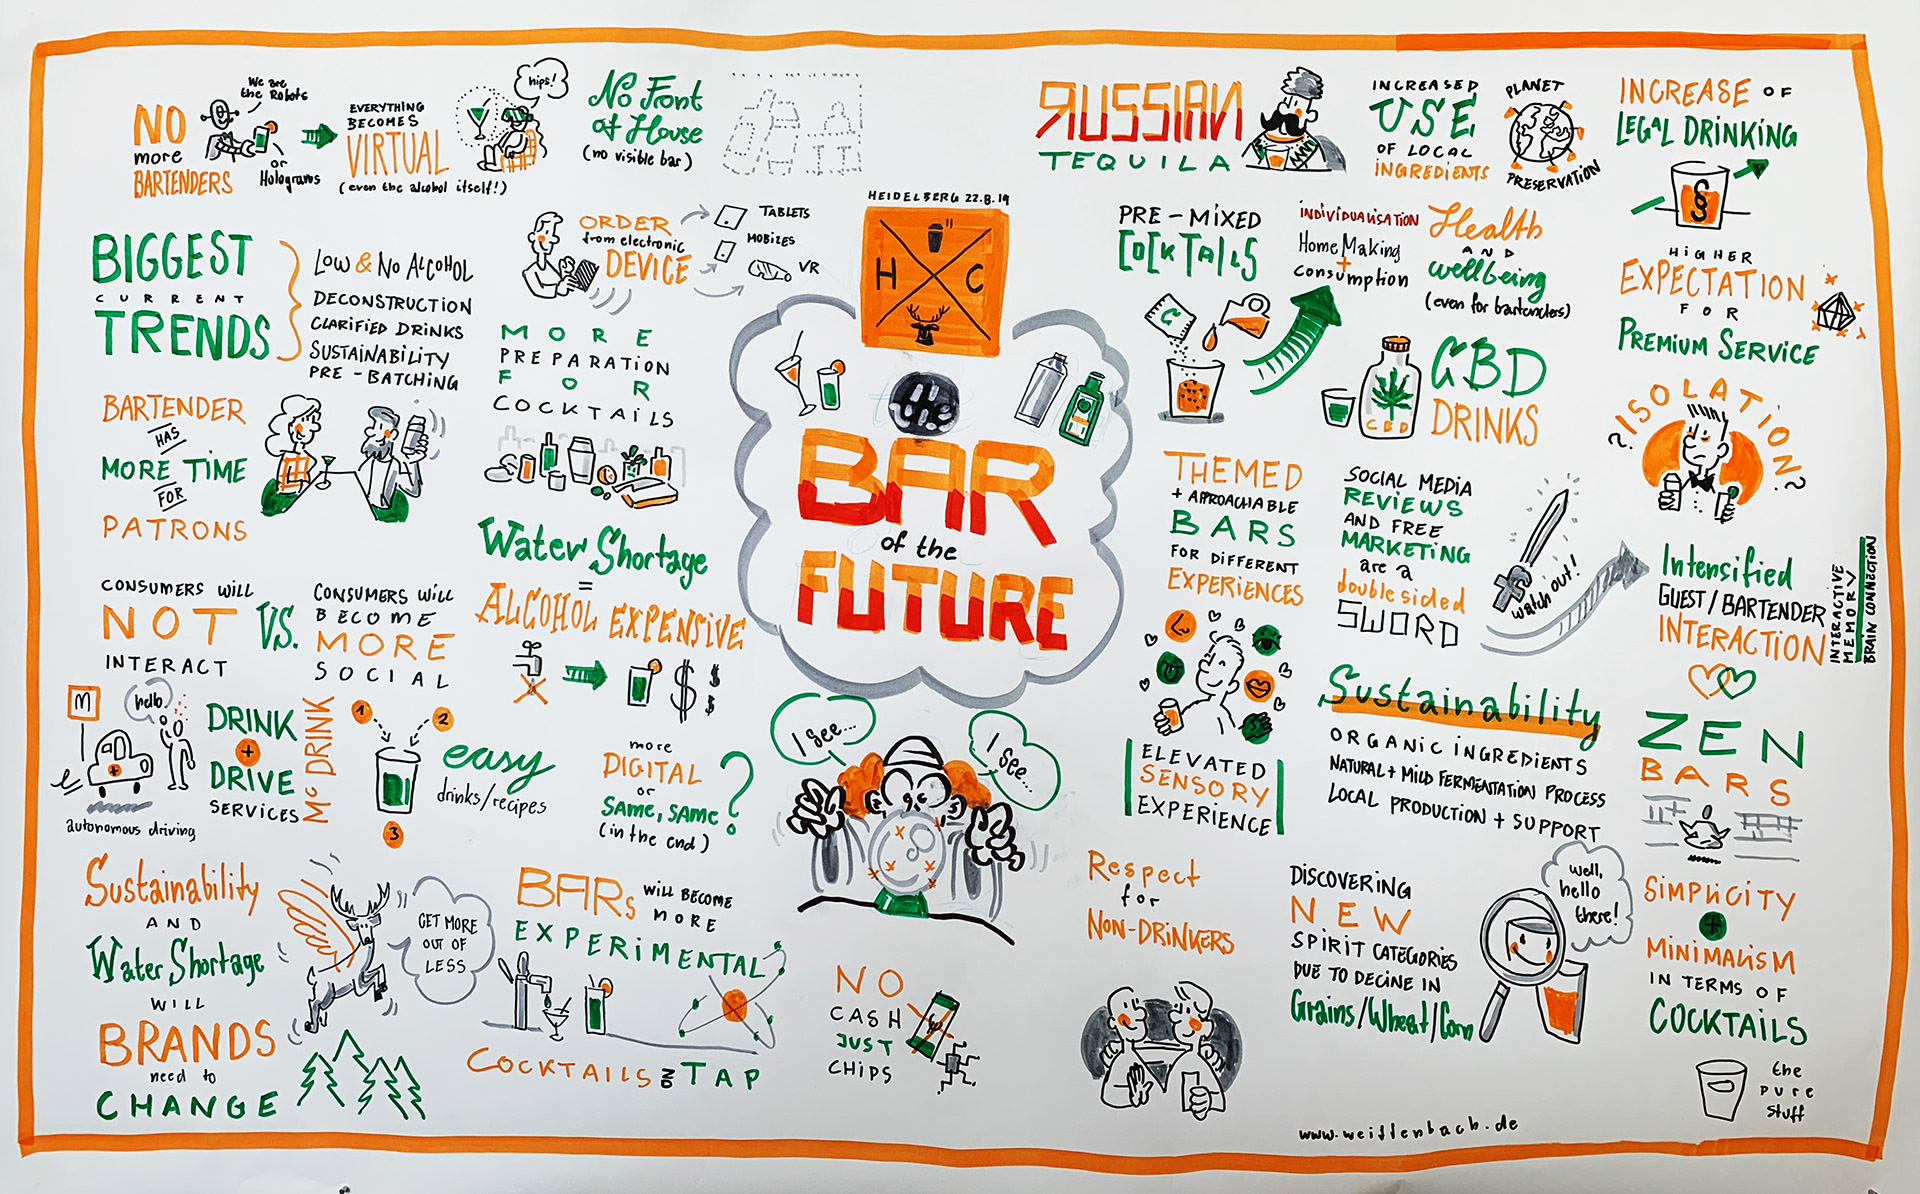 NO
more
BARTENDERS
We are
the Robots
or
Holograms
EVERYTHING
BECOMES
VIRTUAL
(even the alcohol itself!)
hips!
No Front
of House
(no visible bar)
BIGGEST
CURRENT
TRENDS
LOW & NO ALCOHOL
DECONSTRUCTION
CLARIFIED DRINKS
SUSTAINABILITY
PRE-BATCHING
ORDER
from electronic
DEVICE
TABLETS
MOBILES
VR
MORE
PREPARATION
FOR
COCKTAILS
BARTENDER
HAS
MORE TIME
FOR
PATRONS
Water Shortage
=
ALCOHOL EXPENSIVE
$
$
$
$
CONSUMERS WILL
NOT
INTERACT
VS.
CONSUMERS WILL
BECOME
MORE
SOCIAL
M
hello
autonomous driving
DRINK
+
DRIVE
SERVICES
Mc DRINK
1
2
3
easy
drinks/recipes
more
DIGITAL
or
SAME, SAME
(in the end)
?
Sustainability
AND
Water Shortage
WILL
BRANDS
need to
CHANGE
GET MORE
OUT OF
LESS
BARs WILL BECOME
MORE
EXPERIMENTAL
COCKTAILS ON TAP
HEIDELBERG 22.8.19
H C
BAR
of the
FUTURE
I see...
I see...
NO
CASH
JUST
CHIPS
ЯUSSIAN
TEQUILA
INCREASED
USE
OF LOCAL
INGREDIENTS
PLANET
PRESERVATION
INCREASE OF
LEGAL DRINKING
§
PRE-MIXED
COCKTAILS
INDIVIDUALISATION
Home Making
+
consumption
Health
AND
wellbeing
(even for bartenders)
HIGHER
EXPECTATION
FOR
PREMIUM SERVICE
CBD
CBD
DRINKS
?ISOLATION?
THEMED
+ APPROACHABLE
BARS
FOR DIFFERENT
EXPERIENCES
SOCIAL MEDIA
REVIEWS
AND FREE
MARKETING
are a
double sided
SWORD
watch out!
Intensified
GUEST/BARTENDER
INTERACTION
INTERACTIVE
MEMORY
BRAIN CONNECTION
ELEVATED
SENSORY
EXPERIENCE
Sustainability
ORGANIC INGREDIENTS
NATURAL + MILD FERMENTATION PROCESS
LOCAL PRODUCTION + SUPPORT
ZEN
BARS
Respect
for
NON-DRINKERS
DISCOVERING
NEW
SPIRIT CATEGORIES
DUE TO DECINE IN
Grains/Wheat/Corn
well,
hello
there!
SIMPLICITY
+
MINIMALISM
IN TERMS OF
COCKTAILS
the
pure
stuff